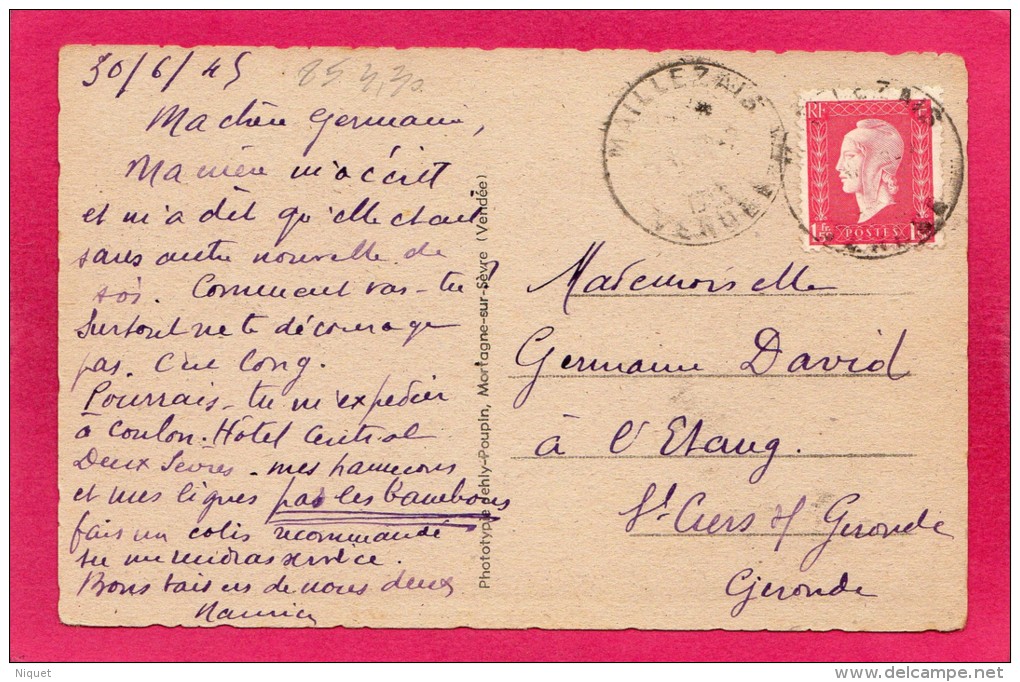 30/6/45
85 3,30
Ma chère Germaine,
Ma mère m'a écrit
et m'a dit qu'elle était
sans autre nouvelle de
toi. Comment vas-tu?
Surtout ne te décourage
pas. C'est long.
Pourrais-tu m'expédier
à Coulon. Hôtel Central
Deux Sèvres - mes hameçons
et mes lignes pas les bambous
fais un colis recommandé
tu me rendras service.
Bons baisers de nous deux
Maurice
Phototypie Jehly-Poupin, Mortagne-sur-Sèvre (Vendée)
MAILLEZAIS
VENDÉE
MAILLEZAIS
VENDÉE
RF
POSTES
Mademoiselle
Germaine David
à l'Etang.
St Ciers s/ Gironde
Gironde
Niquet
www.delcampe.net